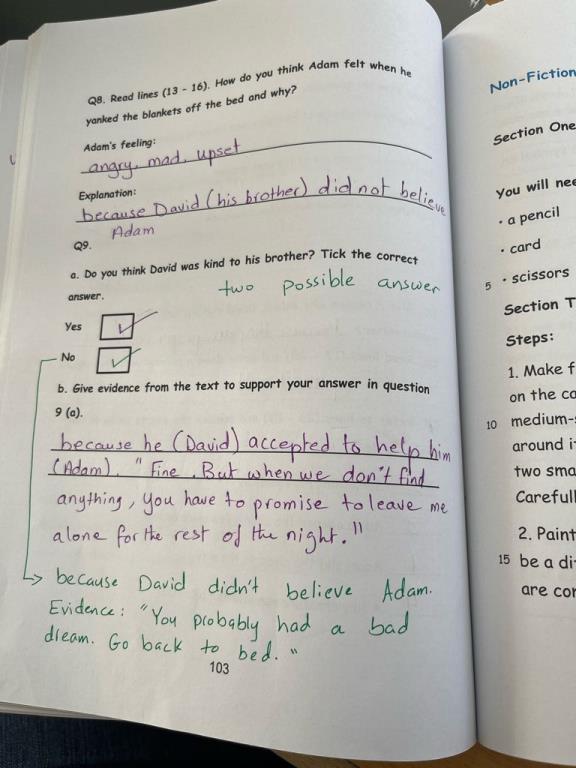 Q8. Read lines (13 - 16). How do you think Adam felt when he
yanked the blankets off the bed and why?
Adam's feeling:
angry, mad, upset
Explanation:
because David (his brother) did not believe
Adam
Q9.
a. Do you think David was kind to his brother? Tick the correct
answer.
two possible answer
Yes
No
b. Give evidence from the text to support your answer in question
9 (a).
because he (David) accepted to help him
(Adam). "Fine. But when we don't find
anything, you have to promise to leave me
alone for the rest of the night."
because David didn't believe Adam.
Evidence: "You probably had a bad
dream. Go back to bed."
103
Non-Fiction
Section One
You will
• a pencil
• card
5 • scissors
Section
Steps:
1. Make
on the
10 medium-
around
two
2. Paint
15 be a
are